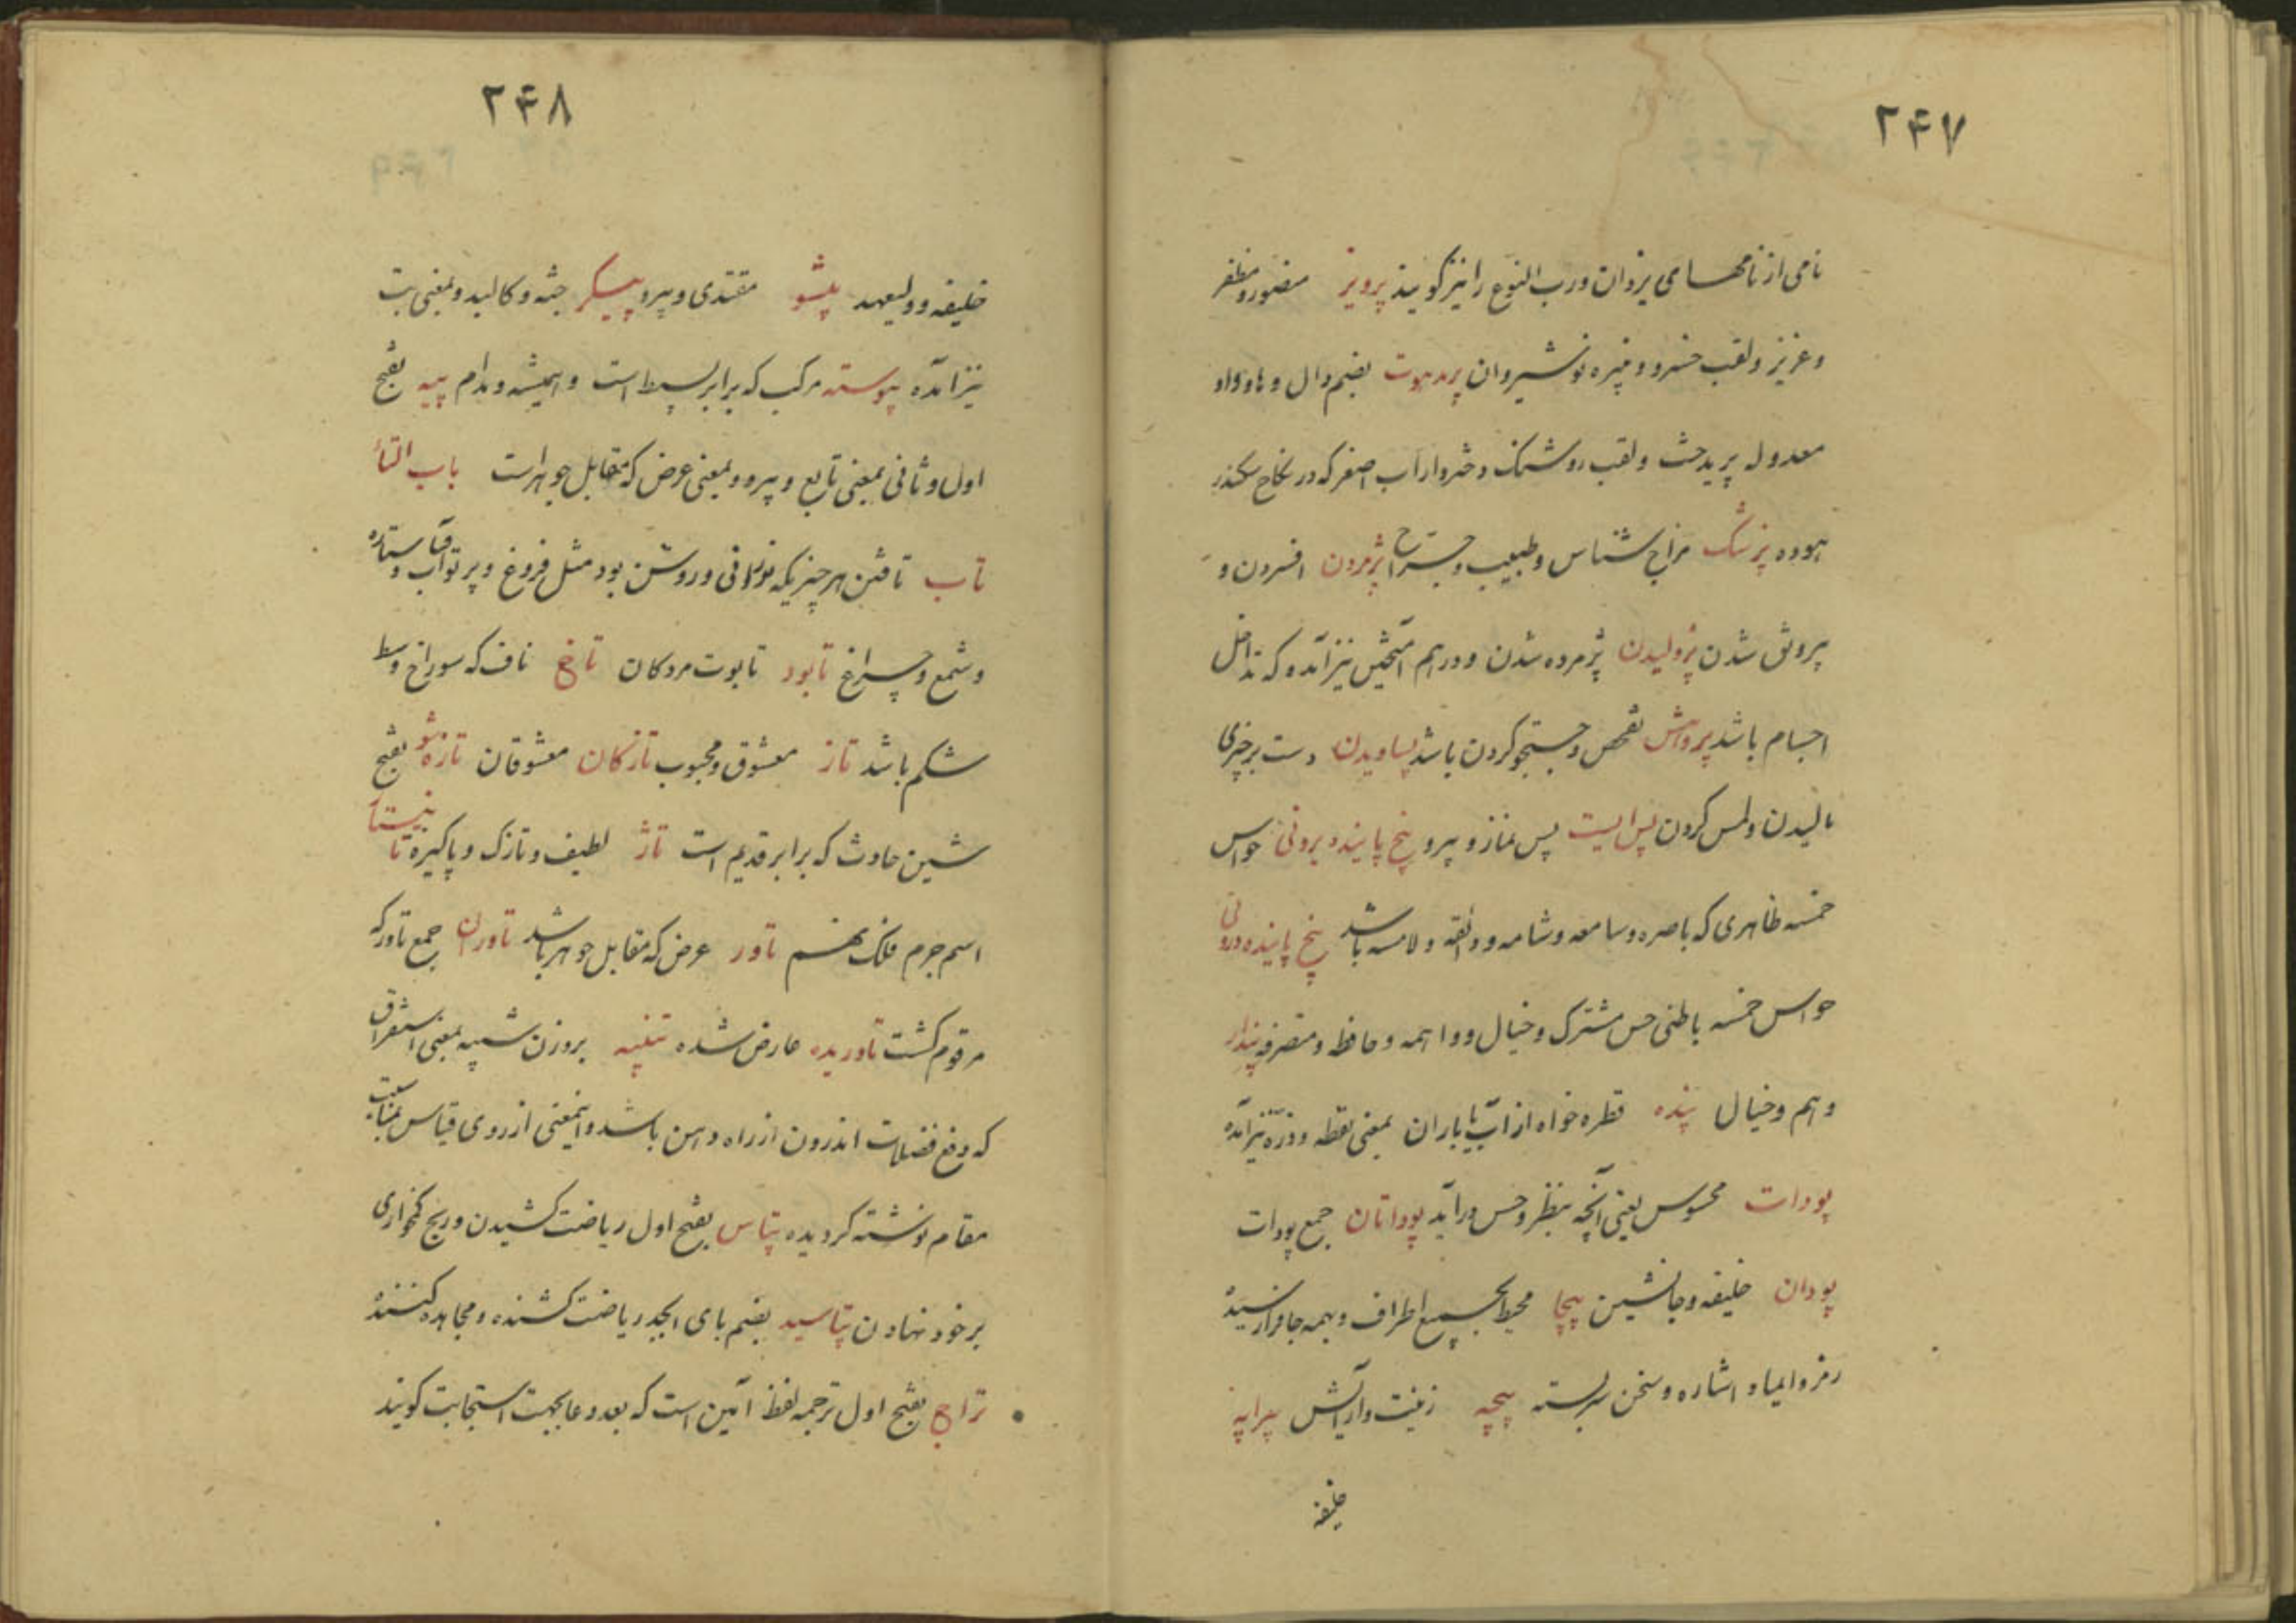 ۲۴۷
نامی از نامهای یزدان و رب النوع را نیز گویند پرویز منصور و مظفر
و عزیز و لقب خسرو و نبیره نوشیروان پرمدهوت بضم دال و ها و واو
معدوله پریدخت و لقب روشنک دختر داراب اصغر که در نکاح سکندر
بوده پزشک مزاج شناس و طبیب و جراح پژمردن افسردن و
بیرونق شدن پژولیدن پژمرده شدن و درهم آمیختن نیز آمده که تداخل
اجسام باشد پژوهش تفحص و جستجو کردن باشد پساویدن دست بر چیزی
مالیدن و لمس کردن پس ایست پس نماز و پیرو پنج پاینده برونی حواس
خمسه ظاهری که باصره و سامعه و شامه و ذائقه و لامسه باشد پنج پاینده درونی
حواس خمسه باطنی حس مشترک و خیال و واهمه و حافظه و متصرفه پندار
وهم و خیال پنده قطره خواه از آب یا باران بمعنی نقطه و ذره نیز آمده
پودات محسوس یعنی آنچه بنظر و حس درآید پوداتان جمع پودات
پودان خلیفه و جانشین پیچا محیط بجمیع اطراف و بهمه جا فرا رسیده
رمز و ایما و اشاره و سخن سربسته پیچه زینت و آرایش پیرایه
خلیفه
۲۴۸
خلیفه و ولیعهد پیشو مقتدی و پیرو پیکر جثه و کالبد و بمعنی بت
نیز آمده پیوسته مرکب که برابر بسیط است و همیشه و مدام پیه بفتح
اول و ثانی بمعنی تابع و پیرو و بمعنی عرض که مقابل جوهر است باب التاء
تاب تافتن هر چیزیکه نورانی و روشن بود مثل فروغ و پرتو آفتاب و ستاره
و شمع و چراغ تابود تابوت مردکان تاخ ناف که سوراخ وسط
شکم باشد تاز معشوق و محبوب تازکان معشوقان تازه شو بفتح
شین حادث که برابر قدیم است تاژ لطیف و نازک و پاکیزه تا
اسم جرم فلک نهم تاور عرض که مقابل جوهر باشد تاوران جمع تاور که
مرقوم گشت تاوریده عارض شده تنپیه بروزن شبیه بمعنی استفراق
که دفع فضلات اندرون از راه دهن باشد و اینمعنی از روی قیاس بمناسبت
مقام نوشته گردیده تپاس بفتح اول ریاضت کشیدن و رنج کمخواری
برخود نهادن تپاسبد بضم بای ابجد ریاضت کشنده و مجاهده کننده
تراج بفتح اول ترجمه لفظ آمین است که بعد دعا بجهت استجابت گویند